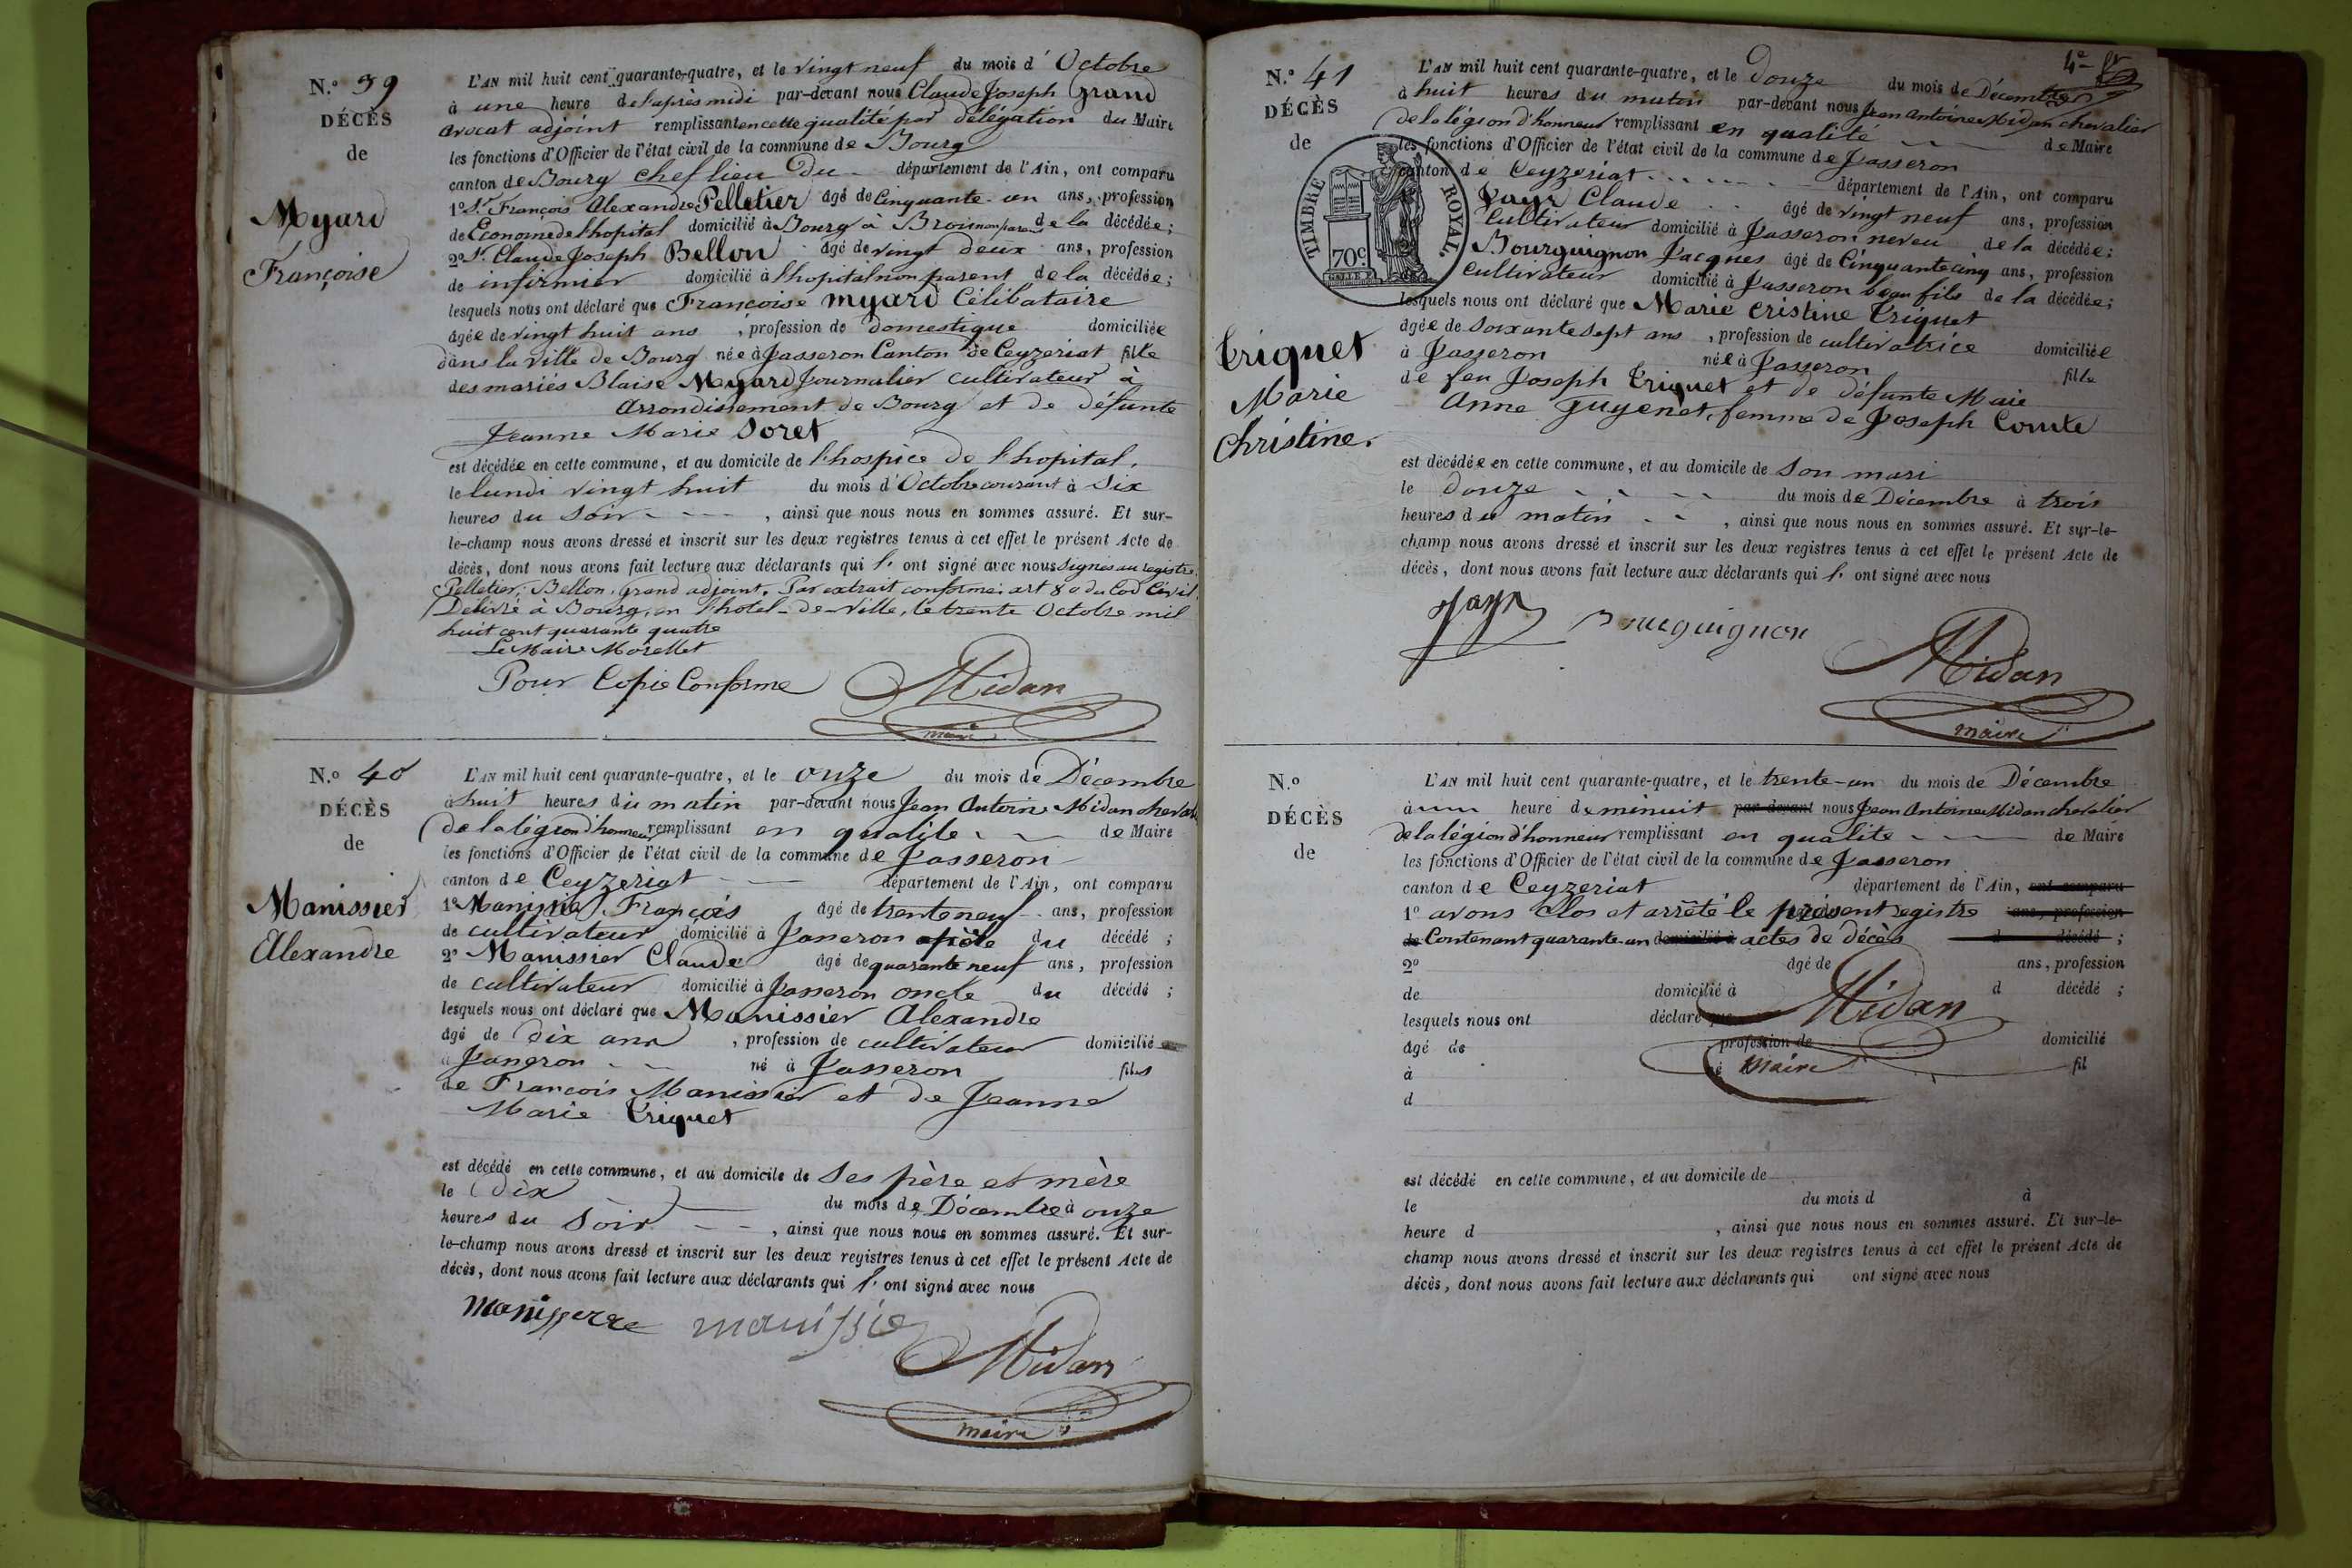 N.° 39
DÉCÈS
de
Myard
Françoise
L'AN mil huit cent quarante-quatre, et le vingt neuf du mois d'Octobre
à une heure de l'après midi par-devant nous Claude Joseph Grand
avocat adjoint remplissant en cette qualité par délégation du Maire
les fonctions d'Officier de l'état civil de la commune de Bourg
canton de Bourg chef lieu du département de l'Ain, ont comparu
1° Sr. François Alexandre Pelletier âgé de Cinquante-un ans, profession
de Econome de l'hopital domicilié à Bourg à Brou non parent de la décédée;
2° Sr. Claude Joseph Bellon âgé de vingt deux ans, profession
de infirmier domicilié à l'hopital non parent de la décédée;
lesquels nous ont déclaré que Françoise Myard Célibataire
âgée de vingt huit ans, profession de domestique domiciliée
dans la ville de Bourg née à Jasseron Canton de Ceyzeriat fille
des mariés Blaise Myard Journalier cultivateur à
Arrondissement de Bourg et de défunte
Jeanne Marie Soret
est décédée en cette commune, et au domicile de l'hospice de l'hopital.
le lundi vingt huit du mois d'Octobre courant à Six
heures du Soir - - -, ainsi que nous nous en sommes assuré. Et sur-
le-champ nous avons dressé et inscrit sur les deux registres tenus à cet effet le présent Acte de
décès, dont nous avons fait lecture aux déclarants qui l' ont signé avec nous Signés au registre.
Pelletier, Bellon, Grand adjoint. Par extrait conforme: art 80 du Cod Civil.
Délivré à Bourg, en l'hotel-de-Ville, le trente Octobre mil
huit cent quarante quatre
Le Maire Morellet
Pour Copie Conforme Midan
maire
N.° 40
DÉCÈS
de
Manissier
Alexandre
L'AN mil huit cent quarante-quatre, et le onze du mois de Décembre
à huit heures du matin par-devant nous Jean Antoine Midan cheval
de la légion d'honneur remplissant en qualité - - de Maire
les fonctions d'Officier de l'état civil de la commune de Jasseron
canton de Ceyzeriat département de l'Ain, ont comparu
1° Manissier François âgé de trente neuf ans, profession
de cultivateur domicilié à Jasseron père du décédé;
2° Manissier Claude âgé de quarante neuf ans, profession
de cultivateur domicilié à Jasseron oncle du décédé;
lesquels nous ont déclaré que Manissier Alexandre
âgé de dix ans, profession de cultivateur domicilié
à Jasseron - - né à Jasseron fils
de François Manissier et de Jeanne
Marie Triquet
est décédé en cette commune, et au domicile de Ses père et mère
le dix du mois de Décembre à onze
heures du Soir - -, ainsi que nous nous en sommes assuré. Et sur-
le-champ nous avons dressé et inscrit sur les deux registres tenus à cet effet le présent Acte de
décès, dont nous avons fait lecture aux déclarants qui l' ont signé avec nous
manissier
Midan
maire
4e
N.° 41
DÉCÈS
de
TIMBRE ROYAL.
70c.
Triquet
Marie
Christine.
L'AN mil huit cent quarante-quatre, et le Douze du mois de Décembre
à huit heures du matin par-devant nous Jean Antoine Midan chevalier
de la légion d'honneur remplissant en qualité de Maire
les fonctions d'Officier de l'état civil de la commune de Jasseron
canton de Ceyzeriat département de l'Ain, ont comparu
Claude âgé de vingt neuf ans, profession
Cultivateur domicilié à Jasseron neveu de la décédée;
Bourguignon Jacques âgé de Cinquante cinq ans, profession
Cultivateur domicilié à Jasseron beau fils de la décédée;
lesquels nous ont déclaré que Marie Cristine Triquet
âgée de soixante sept ans, profession de cultivatrice domiciliée
à Jasseron née à Jasseron fille
de feu Joseph Triquet et de défunte Maie
Anne Guyenet, femme de Joseph Comte
est décédée en cette commune, et au domicile de Son mari
le douze - - - du mois de Décembre à trois
heures du matin - -, ainsi que nous nous en sommes assuré. Et sur-le-
champ nous avons dressé et inscrit sur les deux registres tenus à cet effet le présent Acte de
décès, dont nous avons fait lecture aux déclarants qui l' ont signé avec nous
Bourguignon
Midan
maire
N.°
DÉCÈS
de
L'AN mil huit cent quarante-quatre, et le trente-un du mois de Décembre
à heure de minuit par-devant nous Jean Antoine Midan chevalier
de la légion d'honneur remplissant en qualité - - - de Maire
les fonctions d'Officier de l'état civil de la commune de Jasseron
canton de Ceyzeriat département de l'Ain, ont comparu
1° avons Clos et arrêté le présent registre ans, profession
de Contenant quarante-un domicilié à actes de décès d décédé;
2° âgé de ans, profession
de domicilié à d décédé;
lesquels nous ont déclaré que Midan
âgé de profession de domicilié
à né maire fil
d
est décédé en cette commune, et au domicile de
le du mois d à
heure d , ainsi que nous nous en sommes assuré. Et sur-le-
champ nous avons dressé et inscrit sur les deux registres tenus à cet effet le présent Acte de
décès, dont nous avons fait lecture aux déclarants qui ont signé avec nous